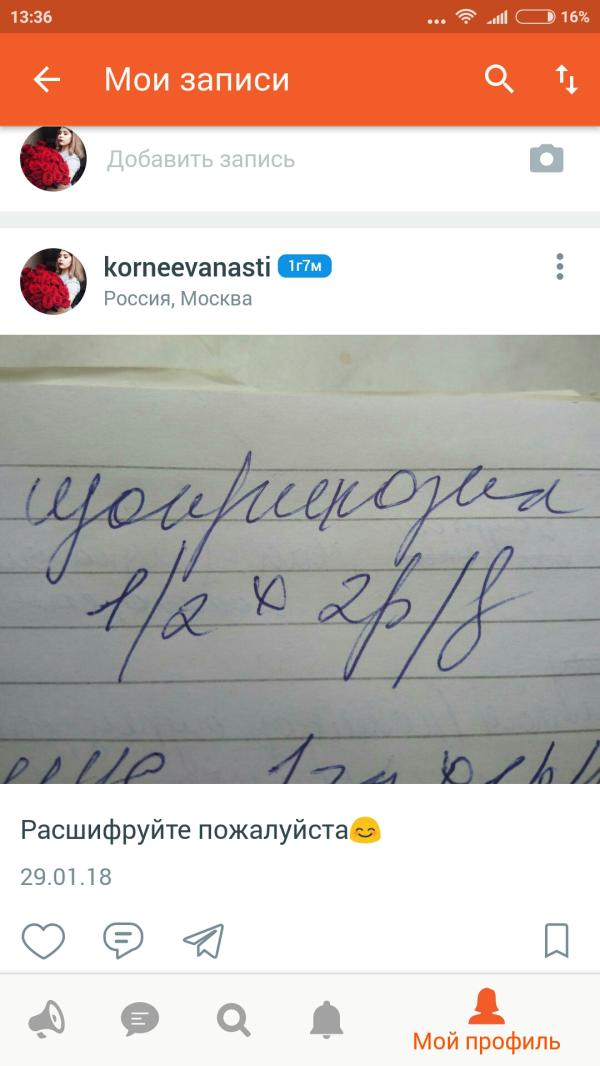 13:36
16%
Мои записи
Добавить запись
korneevanasti 1г7м
Россия, Москва
1/2 х 2р/д
Расшифруйте пожалуйста😊
29.01.18
Мой профиль